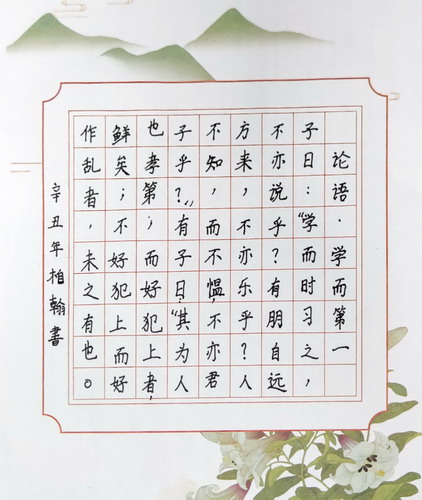 论语·学而第一
子曰：“学而时习之，
不亦说乎？有朋自远
方来，不亦乐乎？人
不知，而不愠，不亦君
子乎？”有子曰：“其为人
也孝第；而好犯上者，
鲜矣；不好犯上而好
作乱者，未之有也。
辛丑年柏翰書